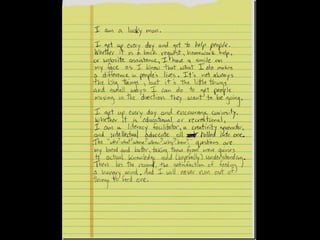 I am a lucky man.
I get up every day and get to help people.
Whether it is a book request, homework help,
or website assistance, I have a smile on
my face as I know that what I do makes
a difference in people's lives. It's not always
the big things, but it's the little things
and small ways I can do to get people
moving in the direction they want to be going.
I get up every day and encourage curiosity.
Whether it is educational or recreational,
I am a literacy facilitator, a creativity
and intellectual advocate all rolled into one.
The "who" "what" "where" "when" "why" "how" questions are
my bread and butter, taking them from mere queries
to actual knowledge and (hopefully) understanding.
There lies the reward, the satisfaction of feeding
a hungry mind. And I will never run out of
things to feed one.